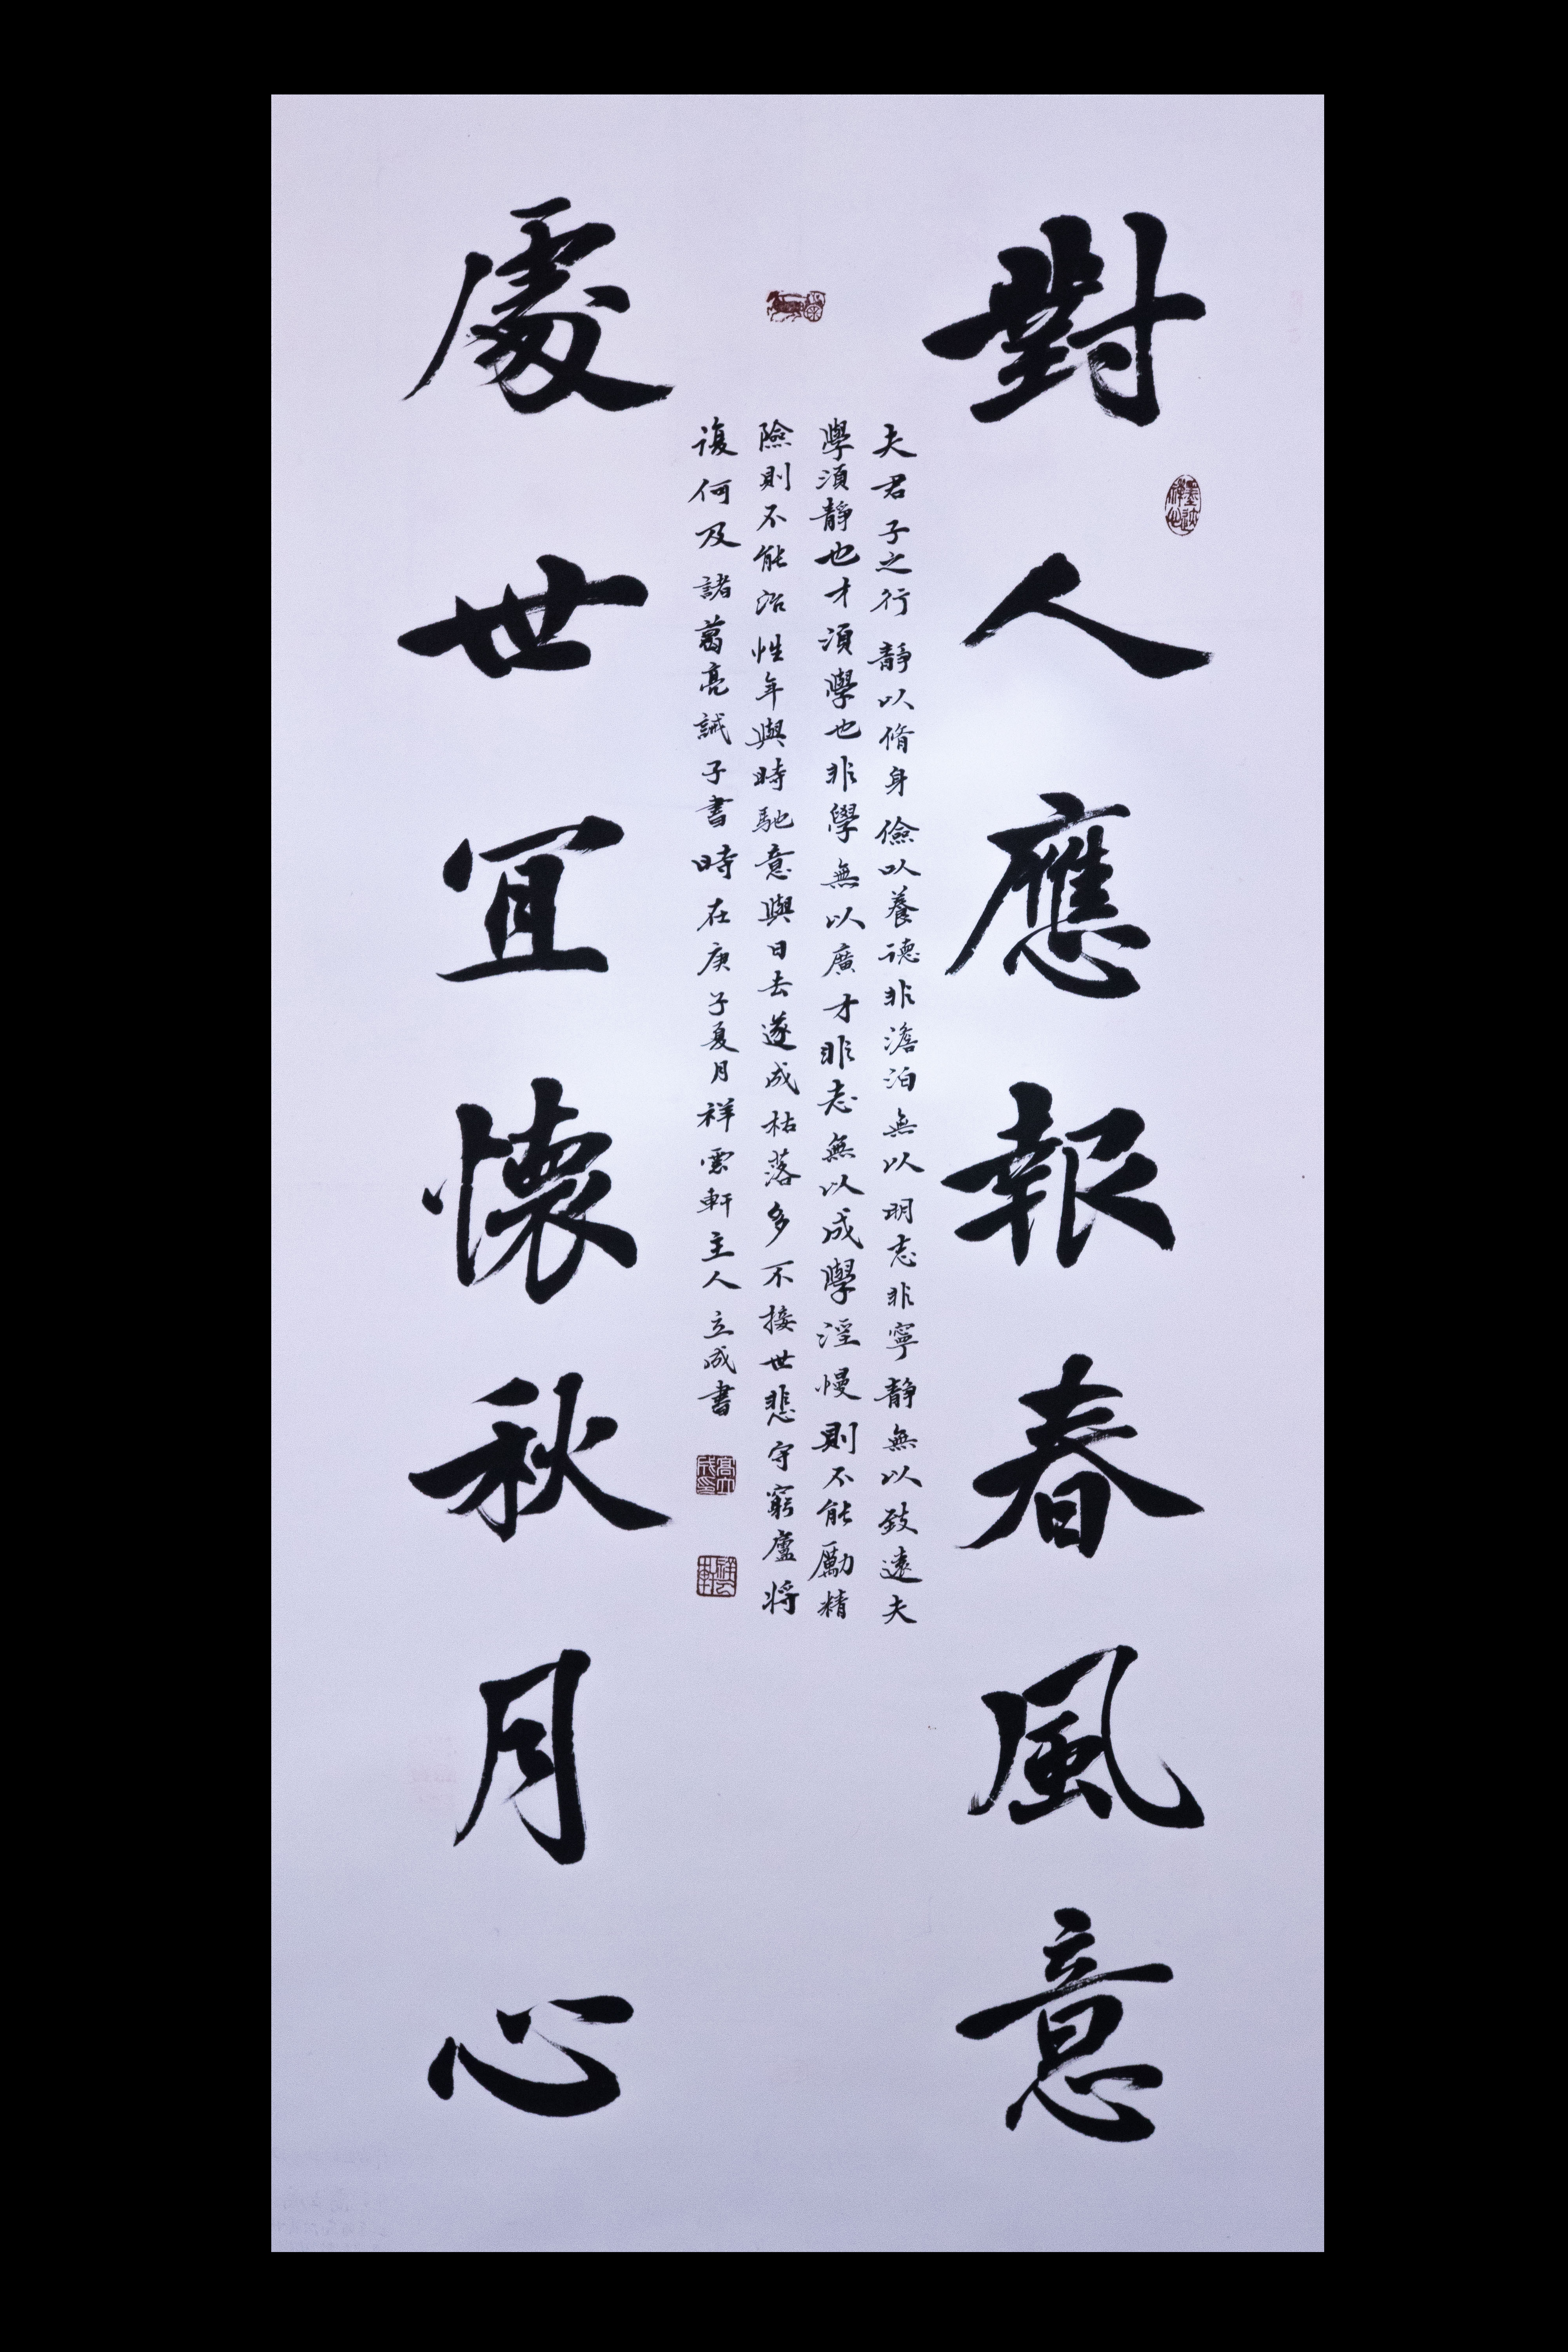 對人應報春風意
夫君子之行靜以脩身儉以養德非澹泊無以明志非寧靜無以致遠夫
學須靜也才須學也非學無以廣才非志無以成學淫慢則不能勵精
險則不能治性年與時馳意與日去遂成枯落多不接世悲守窮廬將
復何及諸葛亮誡子書時在庚子夏月祥雲軒主人立成書
處世宜懷秋月心